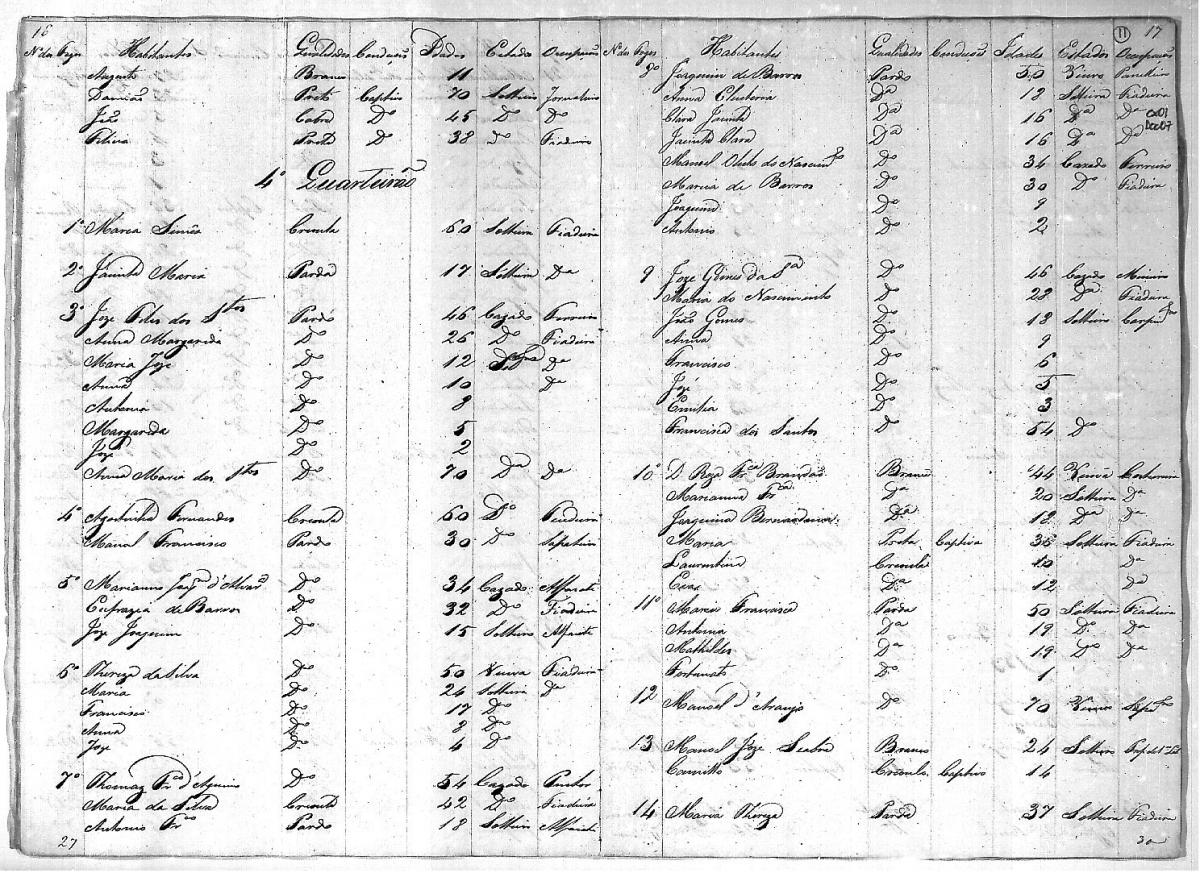 16
Nos dos Fogos Habitantes Qualidades Conduçoẽs Idades Estados Ocupação
Augusto Branco 11
Damião Preto Captivo 70 Solteiro Jornaleiro
João Cabra Do 45 Do Do
Felicia Preta Do 38 do Fiadeira
4o Quarteirão
1o Maria Simôa Crioula 60 Solteira Fiadeira
2o Jacinta Maria Parda 17 Solteira Da
3o Joze Felis dos Stos Pardo 46 Cazado Ferreiro
Anna Margarida Do 26 Do Fiadeira
Maria Joze Do 12 Da
Anna Do 10 Da
Antonia Do 8
Margarida Do 5
Joze Do 2
Anna Maria dos Stos Do 70 Da Da
4o Agostinha Fernandes Crioula 60 Do
Manoel Francisco Pardo 30 Do Sapateiro
5o Marianno d'Alvar Do 34 Cazado Alfaiate
Eufrazia de Barros Do 32 Do Fiadeira
Joze Joaquim Do 15 Solteiro Alfaiate
6o Thereza da Silva Do 50 Viuva Fiadeira
Maria Do 24 Solteira Da
Francisco Do 17 Do
Anna Do 8 Do
Joze Do 4 Do
7o Thomaz Frco d'Aquino Do 54 Cazado Pintor
Maria da Silva Crioula 42 Do Fiadeira
Antonio Frco Pardo 18 Solteiro Alfaiate
27
11 17
Nos dos Fogos Habitantes Qualidades Conduçoẽs Idades Estados Ocupação
8o Joaquim de Barros Pardo 50 Viuvo
Anna Eleuteria Da 18 Solteira Fiadeira
Clara Jacinta Da 16 Da Da
Jacinta Clara Da 16 Da Da
Cx01
Doc07
Manoel do Nascimto Do 34 Cazado Ferreiro
Maria de Barros Do 30 Do Fiadeira
Joaquim Do 9
Antonio Do 2
9 Joze Gomes da Sa Do 46 Cazado Mineiro
Maria do Nascimento Do 28 Da Fiadeira
João Gomes Do 18 Solteiro Carpinro
Anna Do 9
Francisco Do 6
José Do 5
Emilia Do 3
Francisca dos Santos Do 54 Do
10o D. Roza Frca Brandão Branca 44 Viuva Costureira
Marianna Frca Da 20 Solteira Da
Joaquina Bernardina Da 18 Da Da
Maria Preta Captiva 36 Solteira Fiadeira
Laurentina Crioula 10 Da
Eva Da 12 Da
11o Maria Francisca Parda 50 Solteira Fiadeira
Antonia Da 19 Do Da
Mathildes Da 19 Do Da
Fortunato Do 1
12 Manoel d'Araujo Do 70 Viuvo
13 Manoel Joze Seabra Branco 24 Solteiro
Camillo Crioulo Captivo 14
14 Maria Thereza Parda 37 Solteira Fiadeira
30